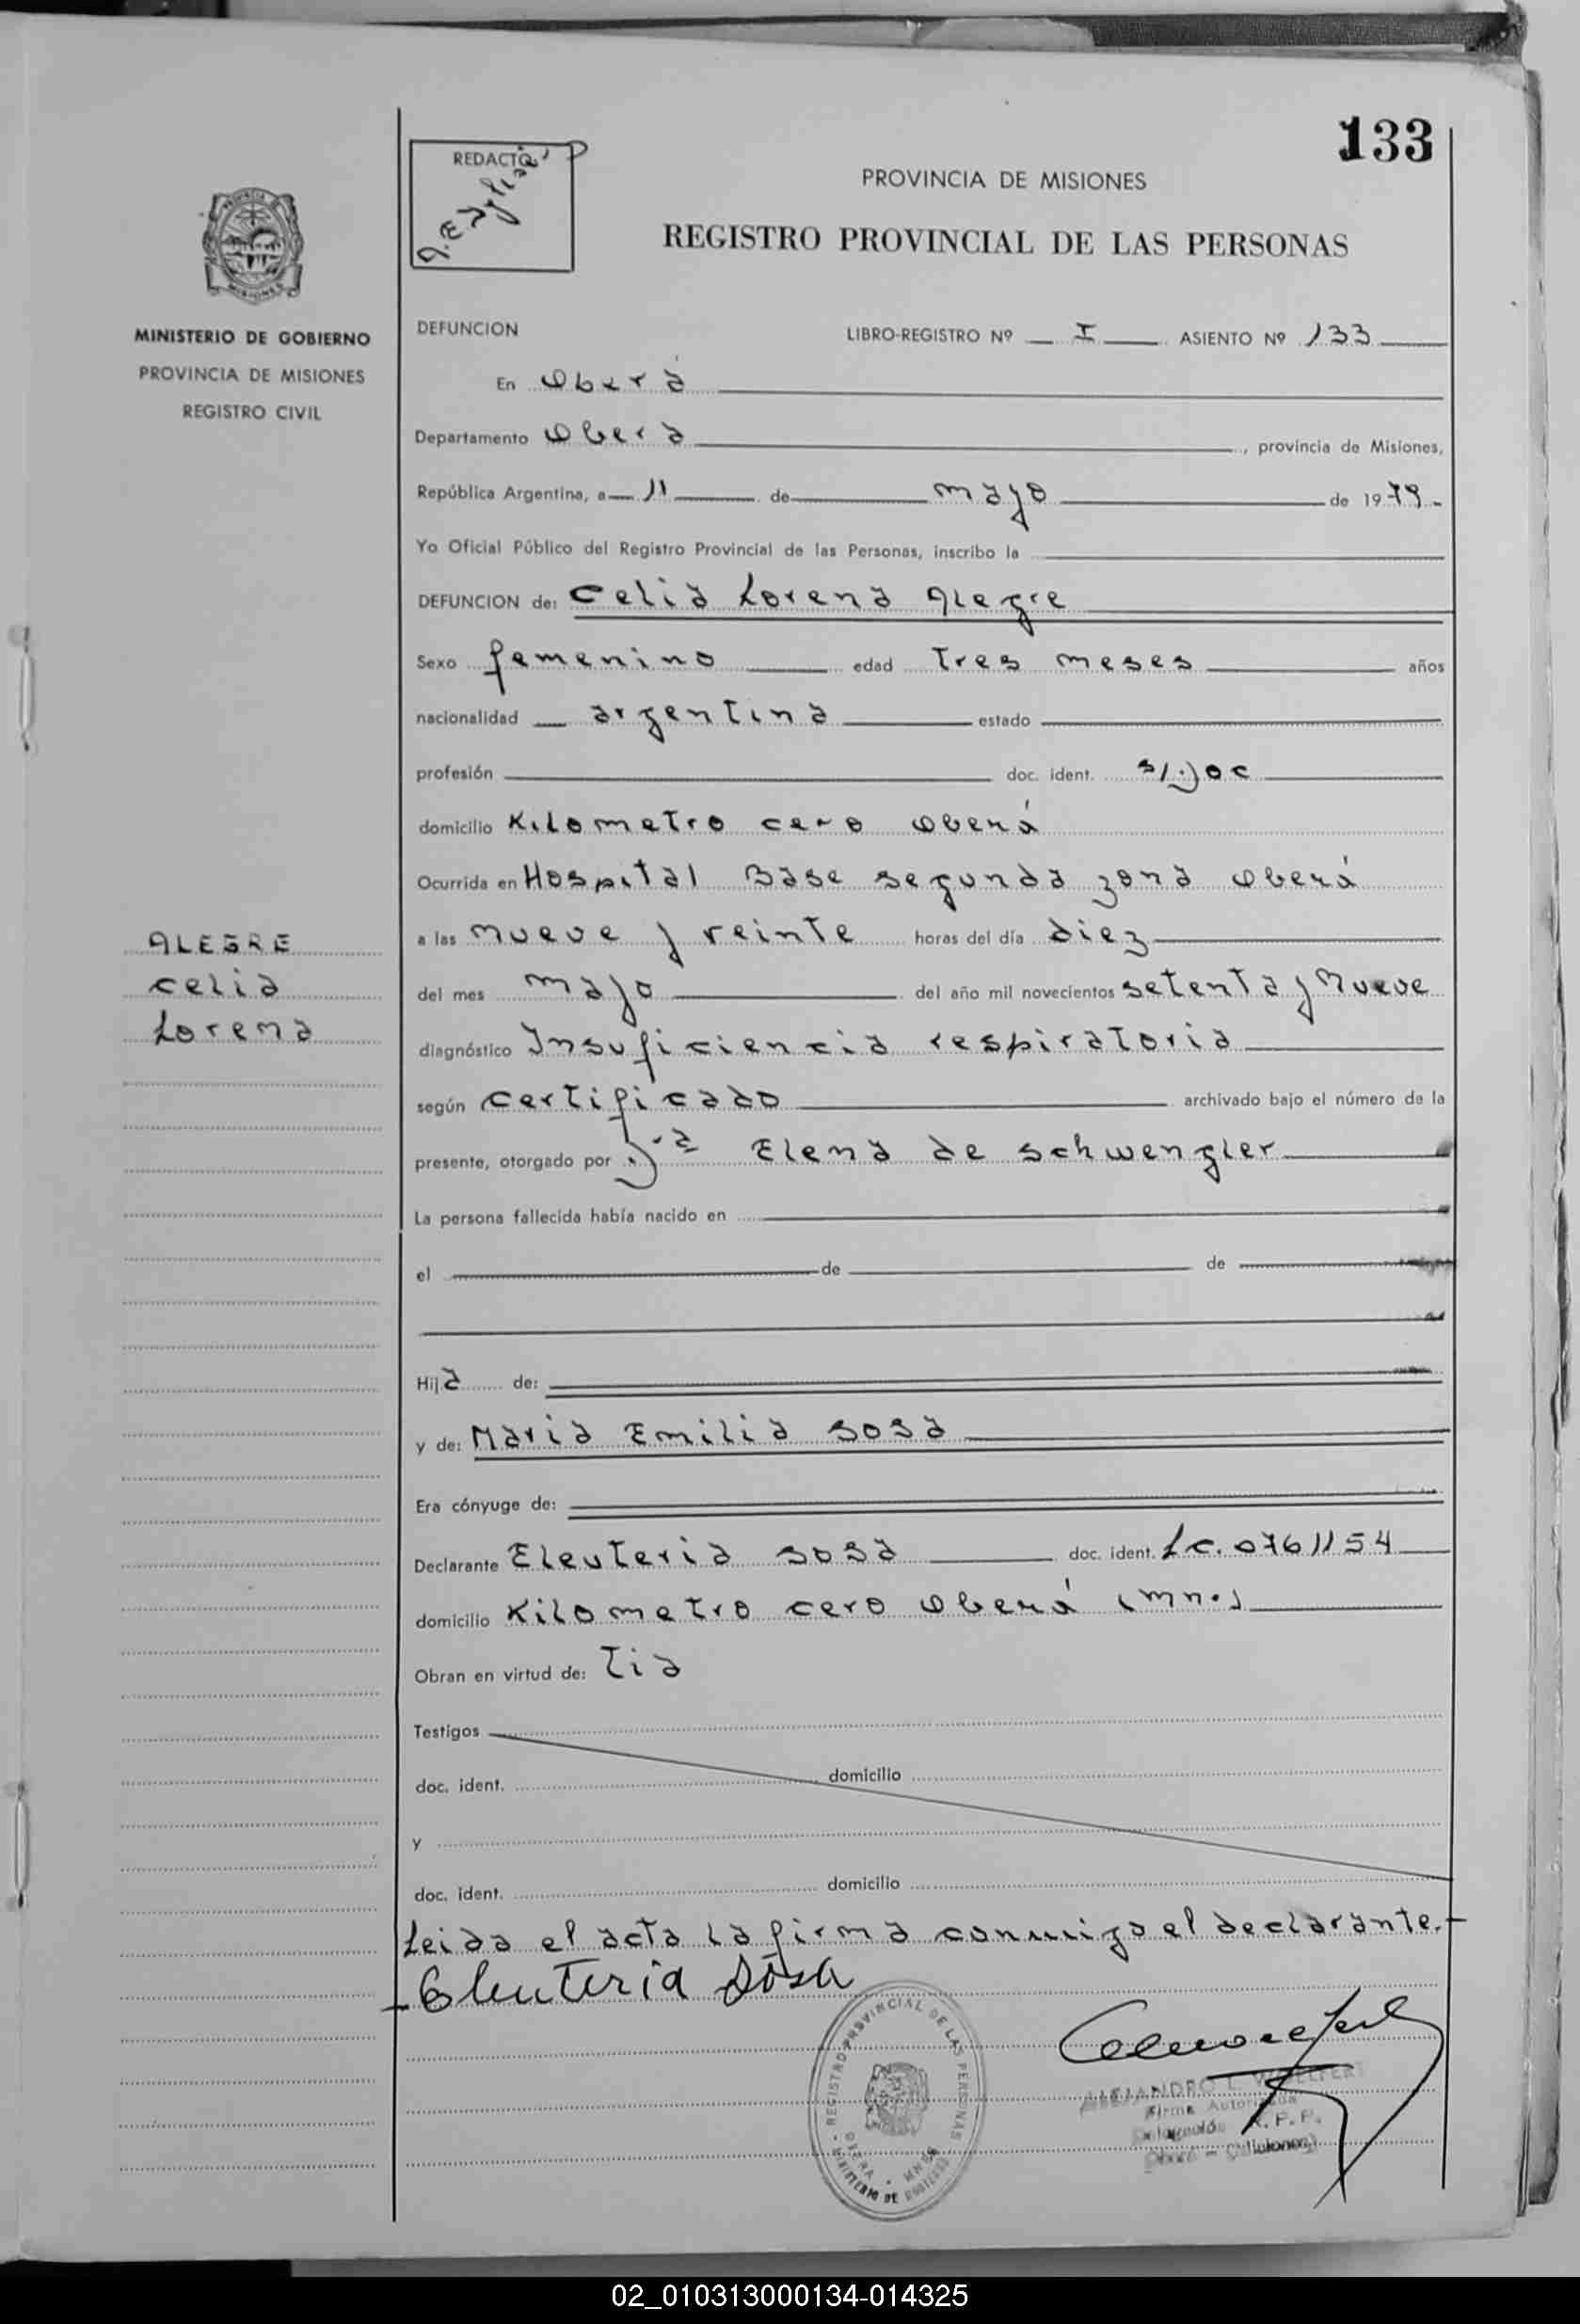 133
REDACTO
PROVINCIA DE MISIONES
REGISTRO PROVINCIAL DE LAS PERSONAS
MINISTERIO DE GOBIERNO
PROVINCIA DE MISIONES
REGISTRO CIVIL
DEFUNCION LIBRO-REGISTRO Nº I ASIENTO Nº 133
En Oberá
Departamento Oberá, provincia de Misiones,
República Argentina, a 11 de mayo de 1979.
Yo Oficial Público del Registro Provincial de las Personas, inscribo la
DEFUNCION de: Celia Lorena Alegre
Sexo femenino edad tres meses años
nacionalidad argentina estado
profesión doc. ident. s/.doc
domicilio Kilometro cero Oberá
Ocurrida en Hospital Base segunda zona Oberá
a las nueve y veinte horas del día diez
del mes mayo del año mil novecientos setenta y Nueve
diagnóstico Insuficiencia respiratoria
según certificado archivado bajo el número de la
presente, otorgado por Dra Elena de Schwengler
La persona fallecida había nacido en
el de de
Hija de:
y de: Maria Emilia Sosa
Era cónyuge de:
Declarante Eleuteria Sosa doc. ident. L.C. 0761154
domicilio Kilometro cero Oberá (mnes)
Obran en virtud de: tia
Testigos
doc. ident. domicilio
y
doc. ident. domicilio
Leida el acta la firma conmigo el declarante.
Eleuteria Sosa
ALEGRE
Celia
Lorena
REGISTRO PROVINCIAL DE LAS PERSONAS
OBERA - MNES
MINISTERIO DE GOBIERNO
ALEJANDRO L. WOELFERT
Firma Autorizada
Delegación R.P.P.
Oberá - (Misiones)
02_010313000134-014325